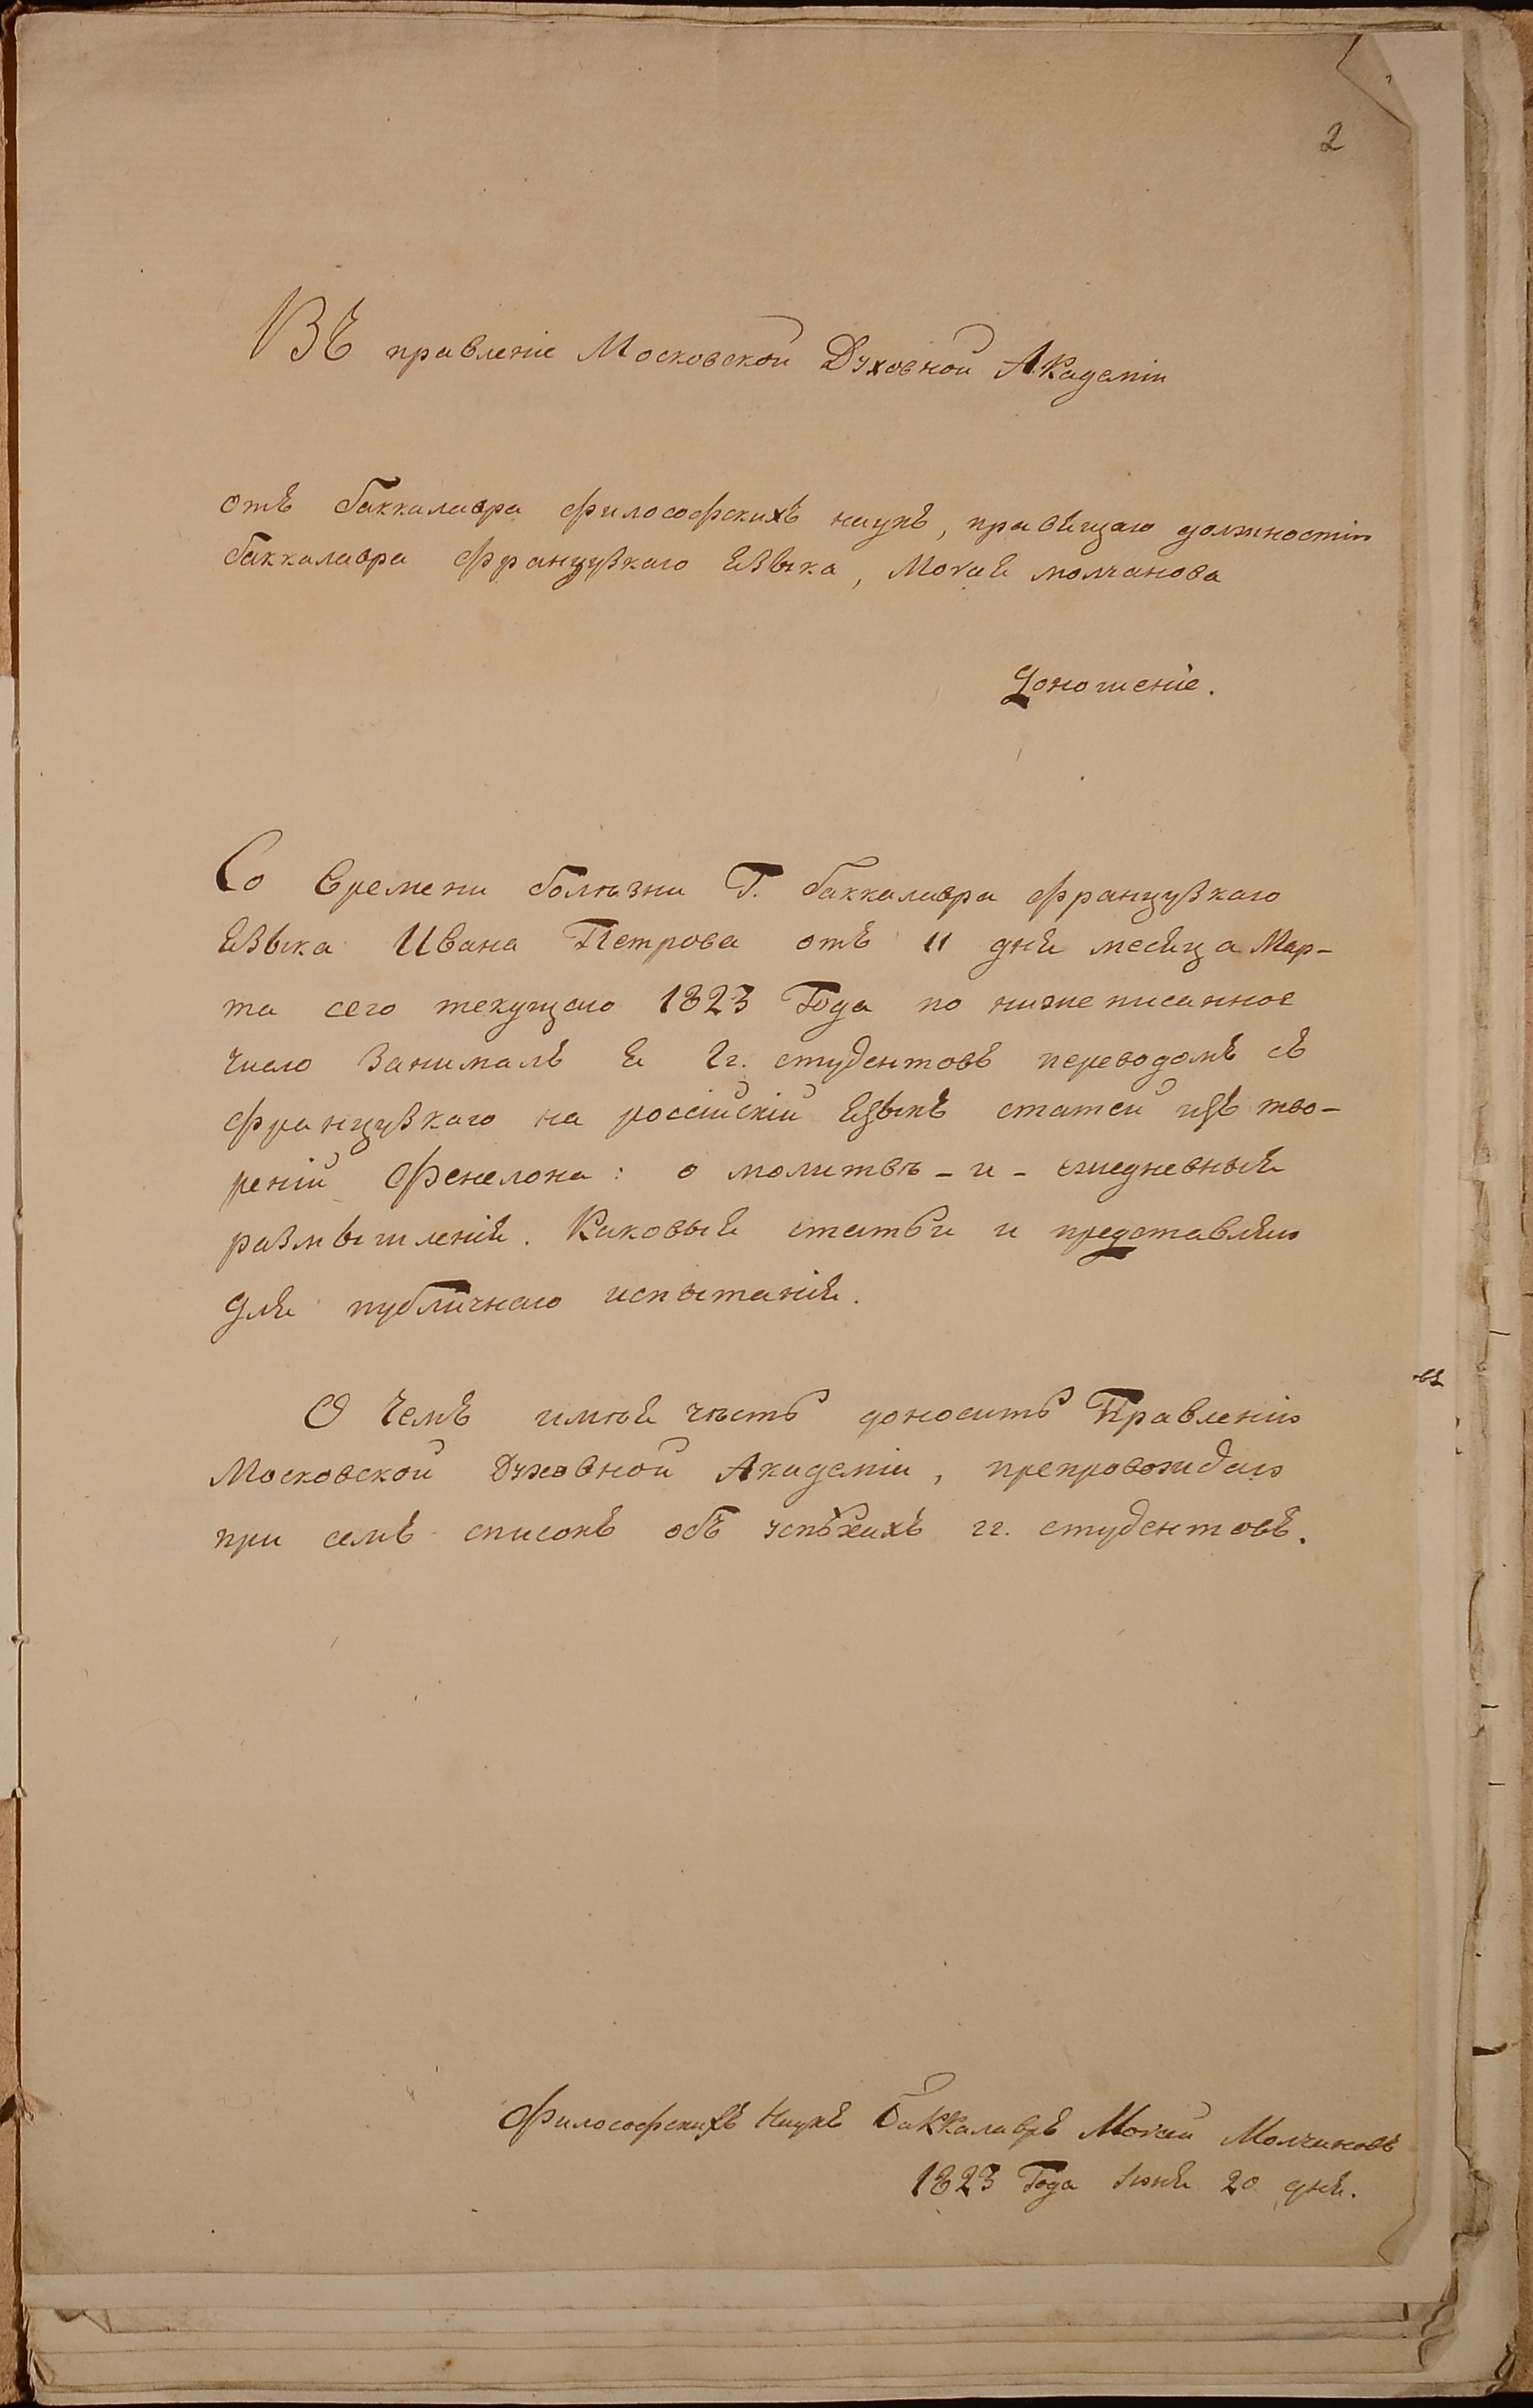 2
Въ правленіе Московской Духовной Академіи
отъ баккалавра философскихъ наукъ, правящаго должностію
баккалавра французкаго языка, Моѵсея молчанова
Доношеніе.
Со времени болѣзни Г. баккалавра французкаго
языка Ивана Петрова отъ 11 дня месяца Мар-
та сего текущаго 1823 Года по нижеписанное
число занималъ я Гг. студентовъ переводомъ съ
французкаго на россійскій языкъ статей изъ тво-
реній Фенелона: о молитвѣ - и - ежедневныя
размышленія. Каковыя статьи и представляю
для публичнаго испытанія.
О чемъ имѣя чѣсть доносить Правленію
Московской Духовной Академіи, препровождаю
при семъ списокъ объ успѣхахъ гг. студентовъ.
Философскихъ Наукъ Баккалавръ Моѵсей Молчановъ
1823 Года Іюня 20 дня.